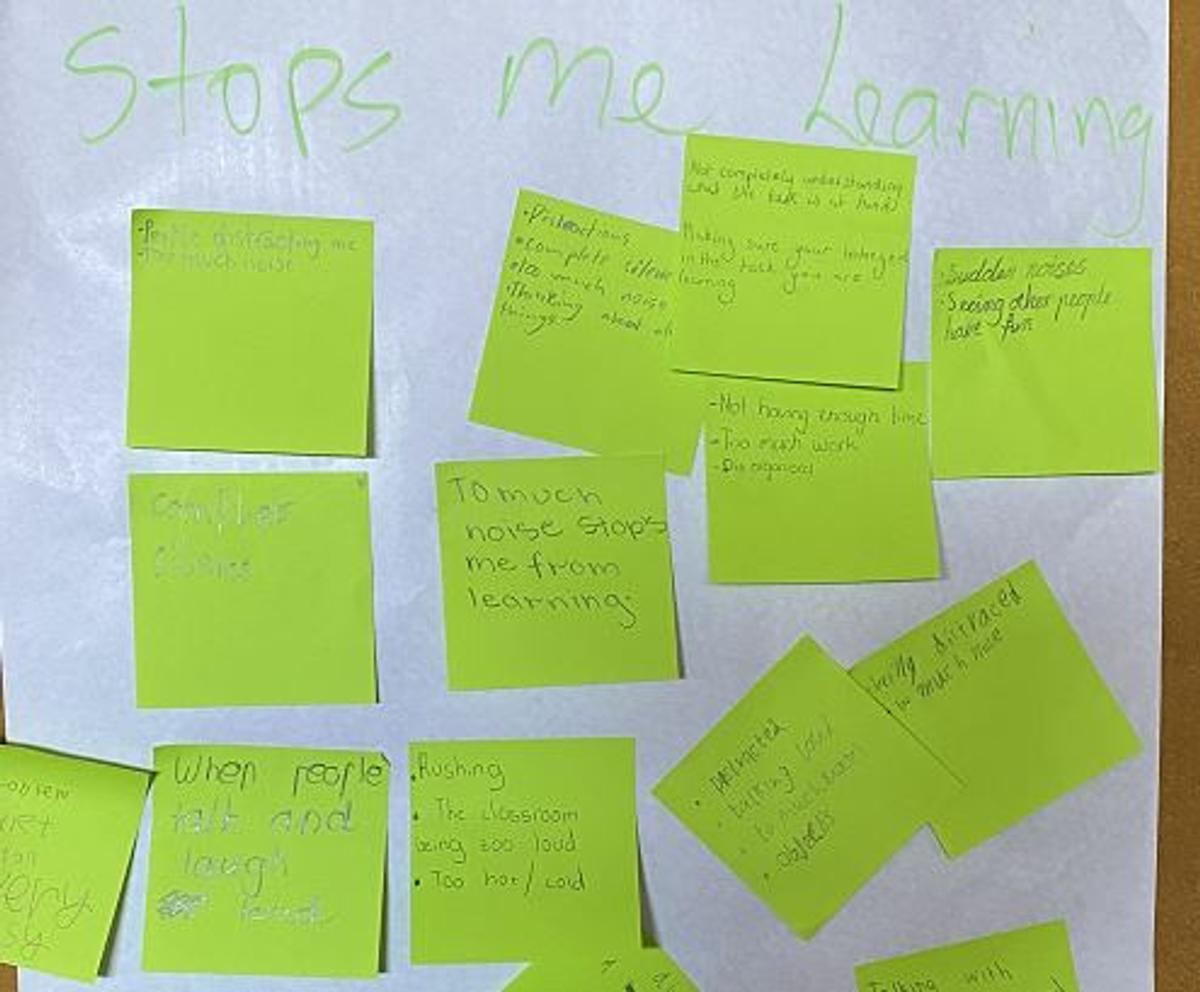 Stops me Learning
- People distracting me
- Too much noise
• Distractions
• complete silence
• too much noise
• Thinking about
things
Not completely understanding
what the task is at hand
Making sure your
in the task you are
learning
- Sudden noises
- Seeing other people
have fun
- Not having enough time
- Too much work
- Disorganised
To much
noise stops
me from
learning.
distraced
to much noise
• Distracted
• talking loud
• to much noise
• objects
When people
talk and
laugh
• Rushing
• The classroom
being too loud
• Too hot / cold
very
Talking with